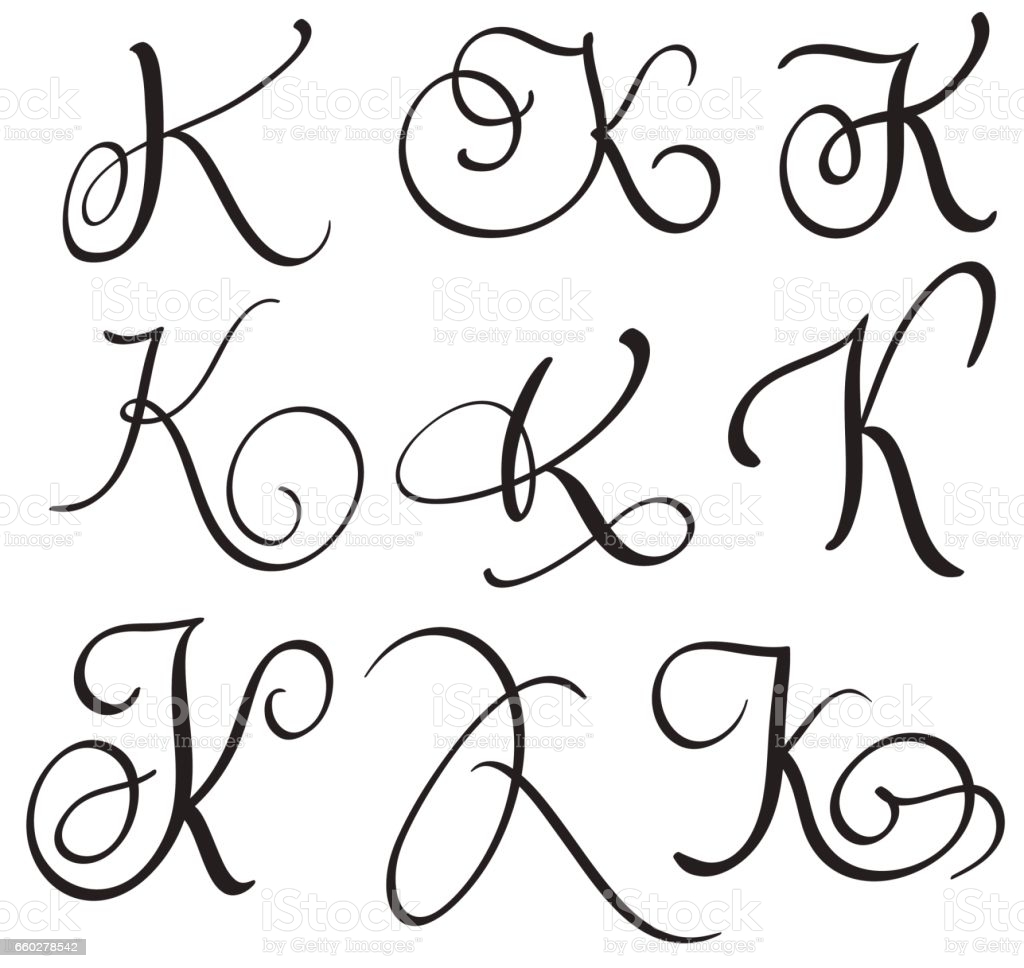 K K K
K K K
K K K
iStock
by Getty Images™
660278542